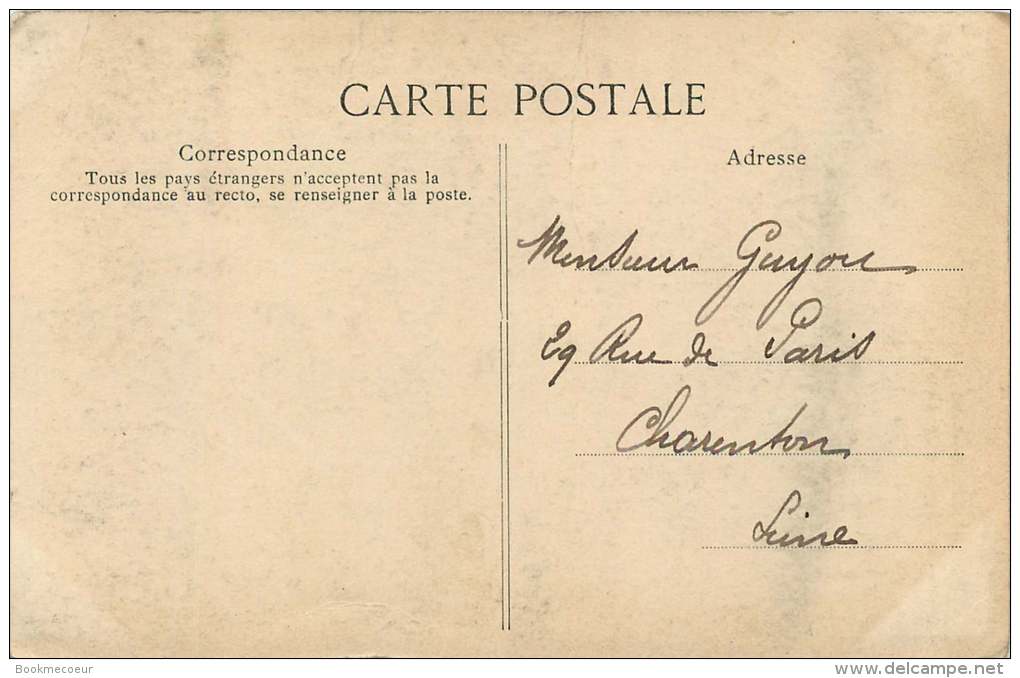 CARTE POSTALE
Correspondance
Tous les pays étrangers n'acceptent pas la
correspondance au recto, se renseigner à la poste.
Adresse
Monsieur Guyou
29 Rue de Paris
Charenton
Seine
Bookmecoeur
www.delcampe.net